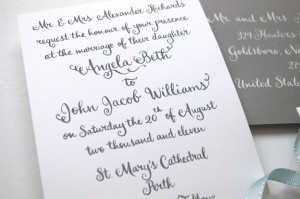 Mr. & Mrs. Alexander Richards
request the honour of your presence
at the marriage of their daughter
Angela Beth
to
John Jacob Williams
on Saturday the 20th of August
two thousand and eleven
St. Mary's Cathedral
Perth
Mr. and Mrs.
329 Hunters
Goldsboro, Ne
United States